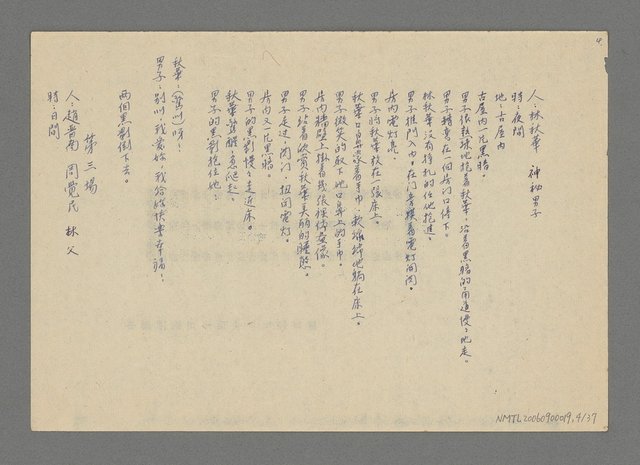 4
人：林秋華　神祕男子
時：夜間
地：古屋內
古屋內一片黑暗。
男子很熟練地抱著秋華，沿着黑暗的甬道慢慢地走。
男子轉彎在一個房門口停下。
林秋華沒有掙扎的任他抱進。
男子推門入內，在門旁摸着電灯開関。
房內電灯亮。
男子將秋華放在一張床上。
秋華口鼻蒙着手巾，軟綿綿地躺在床上。
男子微笑的取下她口鼻上的手巾。
房內牆壁上掛着幾張裸体畫像。
男子站着欣賞秋華美丽的睡態。
男子走過，闭门，扭闭電灯。
房內又一片黑暗。
男子的黑影慢慢走近床。
秋華驚醒，急爬起。
男子的黑影抱住她。
秋華：（驚叫）呀！
男子：別叫，我愛妳，我会給妳快樂幸福！
兩個黑影倒下去。
第三場
人：趙曾南　周覺民　林父
時：日間
NMTL20060900019,4/37